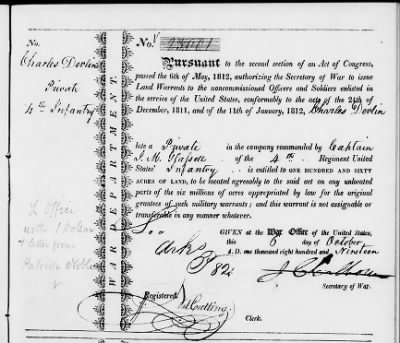 No.
Charles Devlin
Private
4th Infantry
WAR DEPARTMENT.
No.
Pursuant to the second section of an Act of Congress,
passed the 6th of May, 1812, authorizing the Secretary of War to issue
Land Warrants to the noncommissioned Officers and Soldiers enlisted in
the service of the United States, conformably to the acts of the 24th of
December, 1811, and of the 11th of January, 1812, Charles Devlin
late a Private in the company commanded by Captain
of the 4th Regiment United
States' Infantry is entitled to ONE HUNDRED AND SIXTY
ACRES OF LAND, to be located agreeably to the said act on any unlocated
parts of the six millions of acres appropriated by law for the original
grantees of such military warrants; and this warrant is not assignable or
transferable in any manner whatever.
GIVEN at the War Office of the United States,
this 6 day of October
A.D. one thousand eight hundred and Nineteen
Secretary of War.
Registered
Clerk.
L Office
with 1 Dollar
& letter from